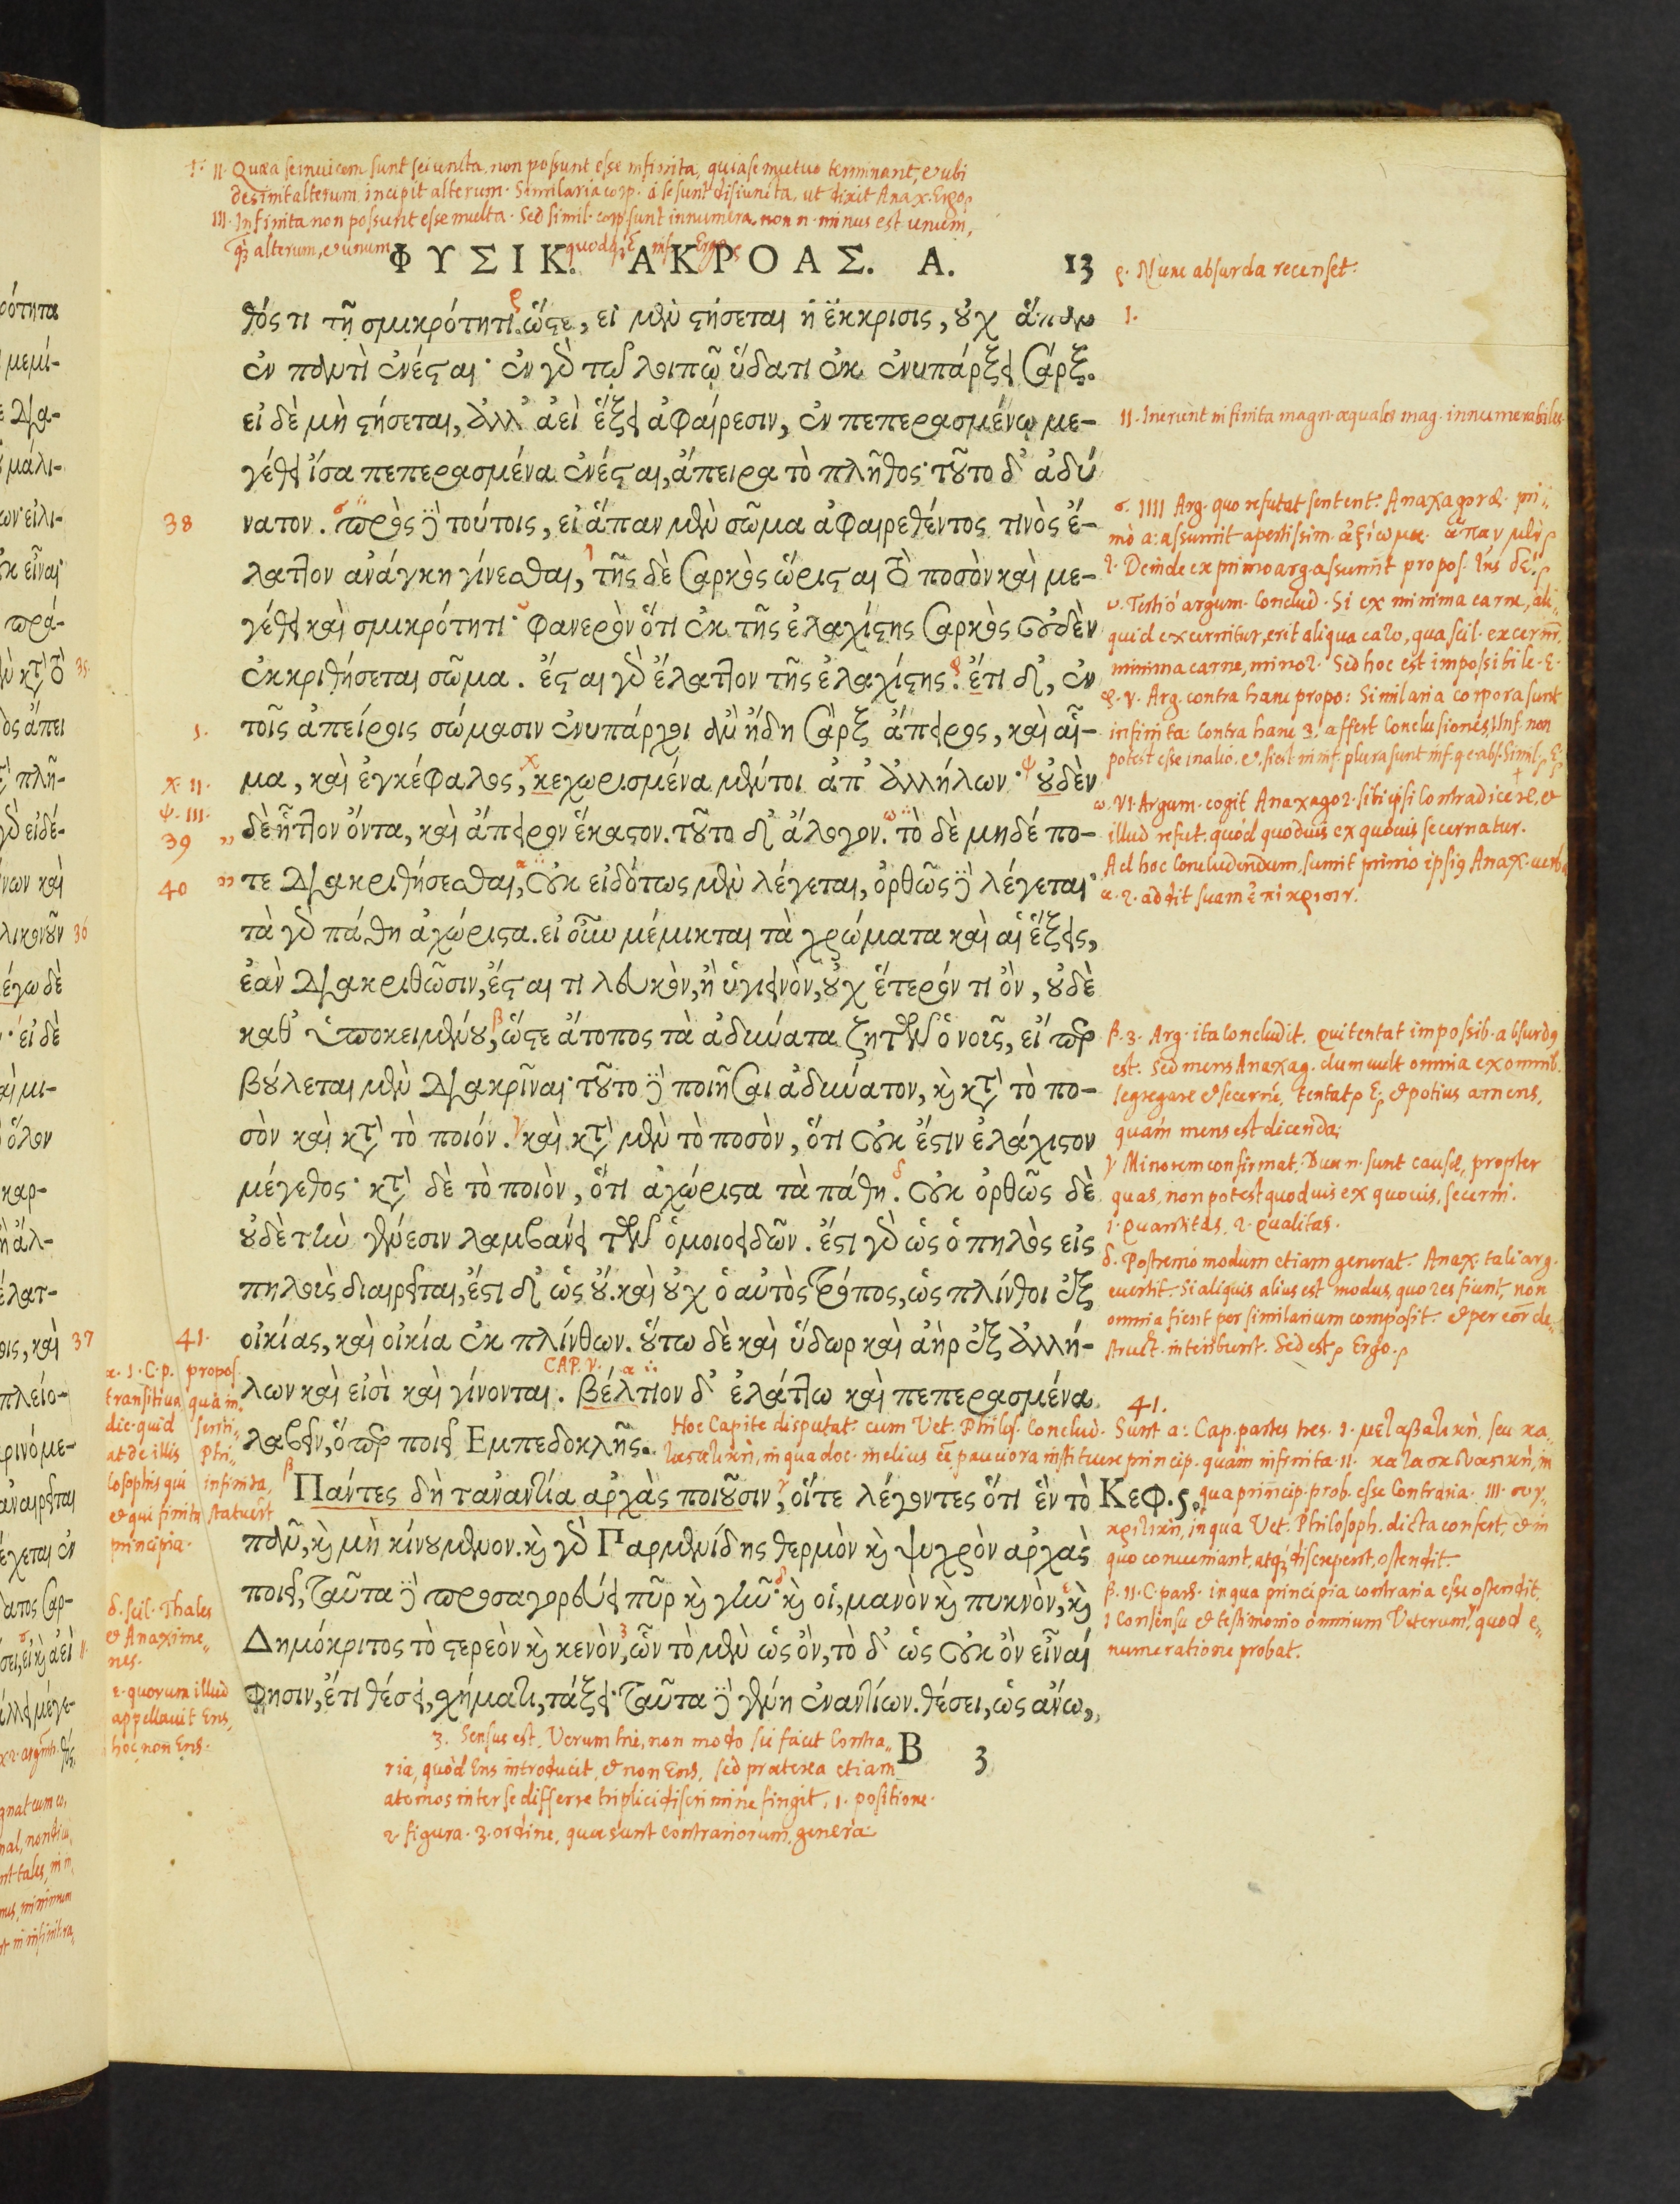 II. Quæ a se inuicem sunt seiuncta, non possunt esse infinita, quia se mutuo terminant, & ubi
desinit alterum, incipit alterum. Similaria corp. a se sunt disiuncta, ut dixit Anax. Ergo
III. Infinita non possunt esse multa. Sed simil. corp. sunt innumera. non n. minus est unum,
alterum, & unum
ΦΥΣΙΚ. ΑΚΡΟΑΣ. Α. 13
θός τι τῇ σμικρότητι. ὥστε, εἰ μὲν στήσεται ἡ ἔκκρισις, οὐχ ἅπαν
ἐν παντὶ ἐνέσται· ἐν γὰρ τῷ λοιπῷ ὕδατι οὐκ ἐνυπάρξει σάρξ.
εἰ δὲ μὴ στήσεται, ἀλλ' ἀεὶ ἕξει ἀφαίρεσιν, ἐν πεπερασμένῳ με-
γέθει ἴσα πεπερασμένα ἐνέσται, ἄπειρα τὸ πλῆθος· τοῦτο δ' ἀδύ
νατον. πρὸς δὲ τούτοις, εἰ ἅπαν μὲν σῶμα ἀφαιρεθέντος τινὸς ἔ-
λαττον ἀνάγκη γίνεσθαι, τῆς δὲ σαρκὸς ὥρισται τὸ ποσὸν καὶ με-
γέθει καὶ σμικρότητι· φανερὸν ὅτι ἐκ τῆς ἐλαχίστης σαρκὸς οὐδὲν
ἐκκριθήσεται σῶμα. ἔσται γὰρ ἔλαττον τῆς ἐλαχίστης. ἔτι δ', ἐν
τοῖς ἀπείροις σώμασιν ἐνυπάρχοι ἂν ἤδη σὰρξ ἄπειρος, καὶ αἷ-
μα, καὶ ἐγκέφαλος, κεχωρισμένα μέντοι ἀπ' ἀλλήλων· οὐδὲν
δὲ ἧττον ὄντα, καὶ ἄπειρον ἕκαστον. τοῦτο δ' ἄλογον. τὸ δὲ μηδέ πο-
τε διακριθήσεσθαι, οὐκ εἰδότως μὲν λέγεται, ὀρθῶς δὲ λέγεται·
τὰ γὰρ πάθη ἀχώριστα. εἰ οὖν μέμικται τὰ χρώματα καὶ αἱ ἕξεις,
ἐὰν διακριθῶσιν, ἔσται τι λευκὸν, ἢ ὑγιεινὸν, οὐχ ἕτερόν τι ὂν, οὐδὲ
καθ' ὑποκειμένου, ὥστε ἄτοπος τὰ ἀδύνατα ζητῶν ὁ νοῦς, εἴπερ
βούλεται μὲν διακρῖναι· τοῦτο δὲ ποιῆσαι ἀδύνατον, καὶ κατὰ τὸ πο-
σὸν καὶ κατὰ τὸ ποιόν. καὶ κατὰ μὲν τὸ ποσὸν, ὅτι οὐκ ἔστιν ἐλάχιστον
μέγεθος· κατὰ δὲ τὸ ποιὸν, ὅτι ἀχώριστα τὰ πάθη. οὐκ ὀρθῶς δὲ
οὐδὲ τὴν γένεσιν λαμβάνει τῶν ὁμοιοειδῶν. ἔστι γὰρ ὡς ὁ πηλὸς εἰς
πηλοὺς διαιρεῖται, ἔστι δ' ὡς οὔ. καὶ οὐχ ὁ αὐτὸς τρόπος, ὡς πλίνθοι ἐξ
οἰκίας, καὶ οἰκία ἐκ πλίνθων. οὕτω δὲ καὶ ὕδωρ καὶ ἀὴρ ἐξ ἀλλή-
CAP. V.
λων καὶ εἰσὶ καὶ γίνονται. βέλτιον δ' ἐλάττω καὶ πεπερασμένα
λαβεῖν, ὅπερ ποιεῖ Ἐμπεδοκλῆς.
Πάντες δὴ τἀναντία ἀρχὰς ποιοῦσιν, οἵτε λέγοντες ὅτι ἓν τὸ Κεφ. ϛ.
πᾶν, καὶ μὴ κινούμενον. καὶ γὰρ Παρμενίδης θερμὸν καὶ ψυχρὸν ἀρχὰς
ποιεῖ, ταῦτα δὲ προσαγορεύει πῦρ καὶ γῆν· καὶ οἱ, μανὸν καὶ πυκνὸν, καὶ
Δημόκριτος τὸ στερεὸν καὶ κενὸν, ὧν τὸ μὲν ὡς ὂν, τὸ δ' ὡς οὐκ ὂν εἶναί
φησιν, ἔτι θέσει, σχήματι, τάξει· ταῦτα δὲ γένη ἐναντίων. θέσει, ὡς ἄνω,
B 3
3. Sensus est. Verum hic, non modo sic facit Contra-
ria, quòd Ens introducit, & non Ens, sed præterea etiam
atomos inter se differre triplici discrimine fingit, 1. positione.
2. figura. 3. ordine, quæ sunt contrariorum genera.
ρ. Nunc absurda recenset.
I.
II. Inerunt infinita magn. æquales mag. innumerabiles
σ. IIII Arg. quo refutat sentent. Anaxagoræ. pri-
mò a: assumit apertissim. ἀξίωμα. ἅπαν μὲν
2. Deinde ex primo arg. assumit propos. τῆς δέ.
υ. Tertiò argum. Conclud. Si ex minima carne, ali-
quid excernitur, erit aliqua caro, qua scil. excernit.
minima carne, minor. Sed hoc est impossibile. E.
φ. V. Arg. contra hanc propo: Similaria corpora sunt
infinita: Contra hanc 3. affert Conclusiones, 1 Inf. non
potest esse in alio.
ω. VI. Argum. cogit Anaxagor. sibi ipsi Contradicere, &
illud refut. quòd quoduis ex quouis secernatur.
Ad hoc Concludendum, sumit primò ipsius Anax. verba
α. 2. addit suam ἐπίκρισιν.
β. 3. Arg. ita Concludit. Qui tentat impossib. absurdus
est. Sed mens Anaxag. dum vult omnia ex omnib.
segregare & secerne, tentat E. & potius amens,
quàm mens est dicenda;
γ Minorem confirmat. Duæ n. sunt causæ, propter
quas, non potest quoduis ex quouis, secerni.
1. Quantitas, 2. Qualitas.
δ. Postremò modum etiam generat. Anax. tali arg.
euertit. Si aliquis alius est modus, quo res fiunt, non
omnia fient per similarium composit. & per eor. de-
struct. interibunt. Sed est, Ergo.
41.
Hoc Capite disputat cum Vet. Philos. Sunt a: Cap. partes tres. 1. μεταβατικὴ, seu κα-
in qua doc. melius eē pauciora instituere princip. quàm infinita. II. κατασκευαστικὴ, in
qua princip. prob. esse Contraria. III. συγ-
κριτικὴ, in qua Vet. Philosoph. dicta confert, & in
quo conueniant, atq; discrepent, ostendit.
β. II. C. pars. in qua principia contraria esse ostendit,
1 Consensu & testimonio omnium Veterum, quod e-
numeratione probat.
38
1.
χ. II.
ψ. III.
39
40
41.
α. 1. C. p. propos.
transitiua, qua in-
dic. quid senti-
at de illis Phi-
losophis qui infinita,
& qui finita statuerūt
principia.
δ. scil. Thales
& Anaxime-
nes.
ε. quorum illud
appellauit Ens,
hoc non Ens.
35
36
37